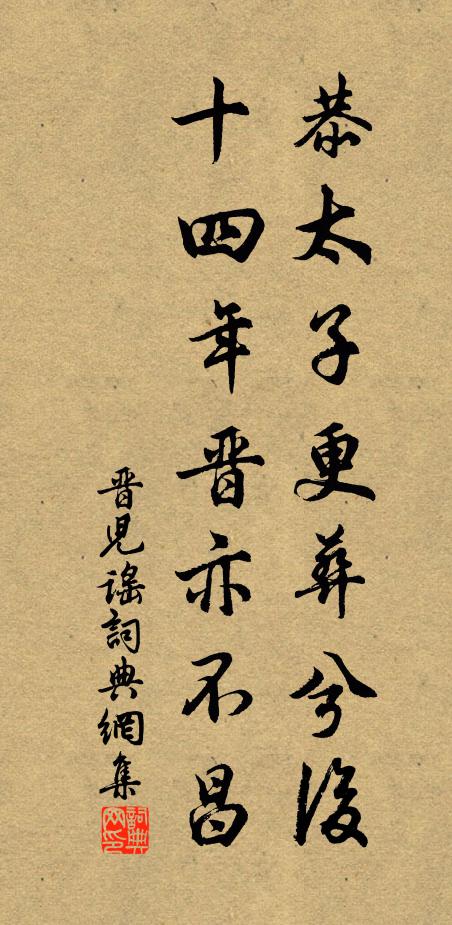 恭太子更葬兮後
十四年晉亦不昌
晉児謠詞典網集
詞典网印